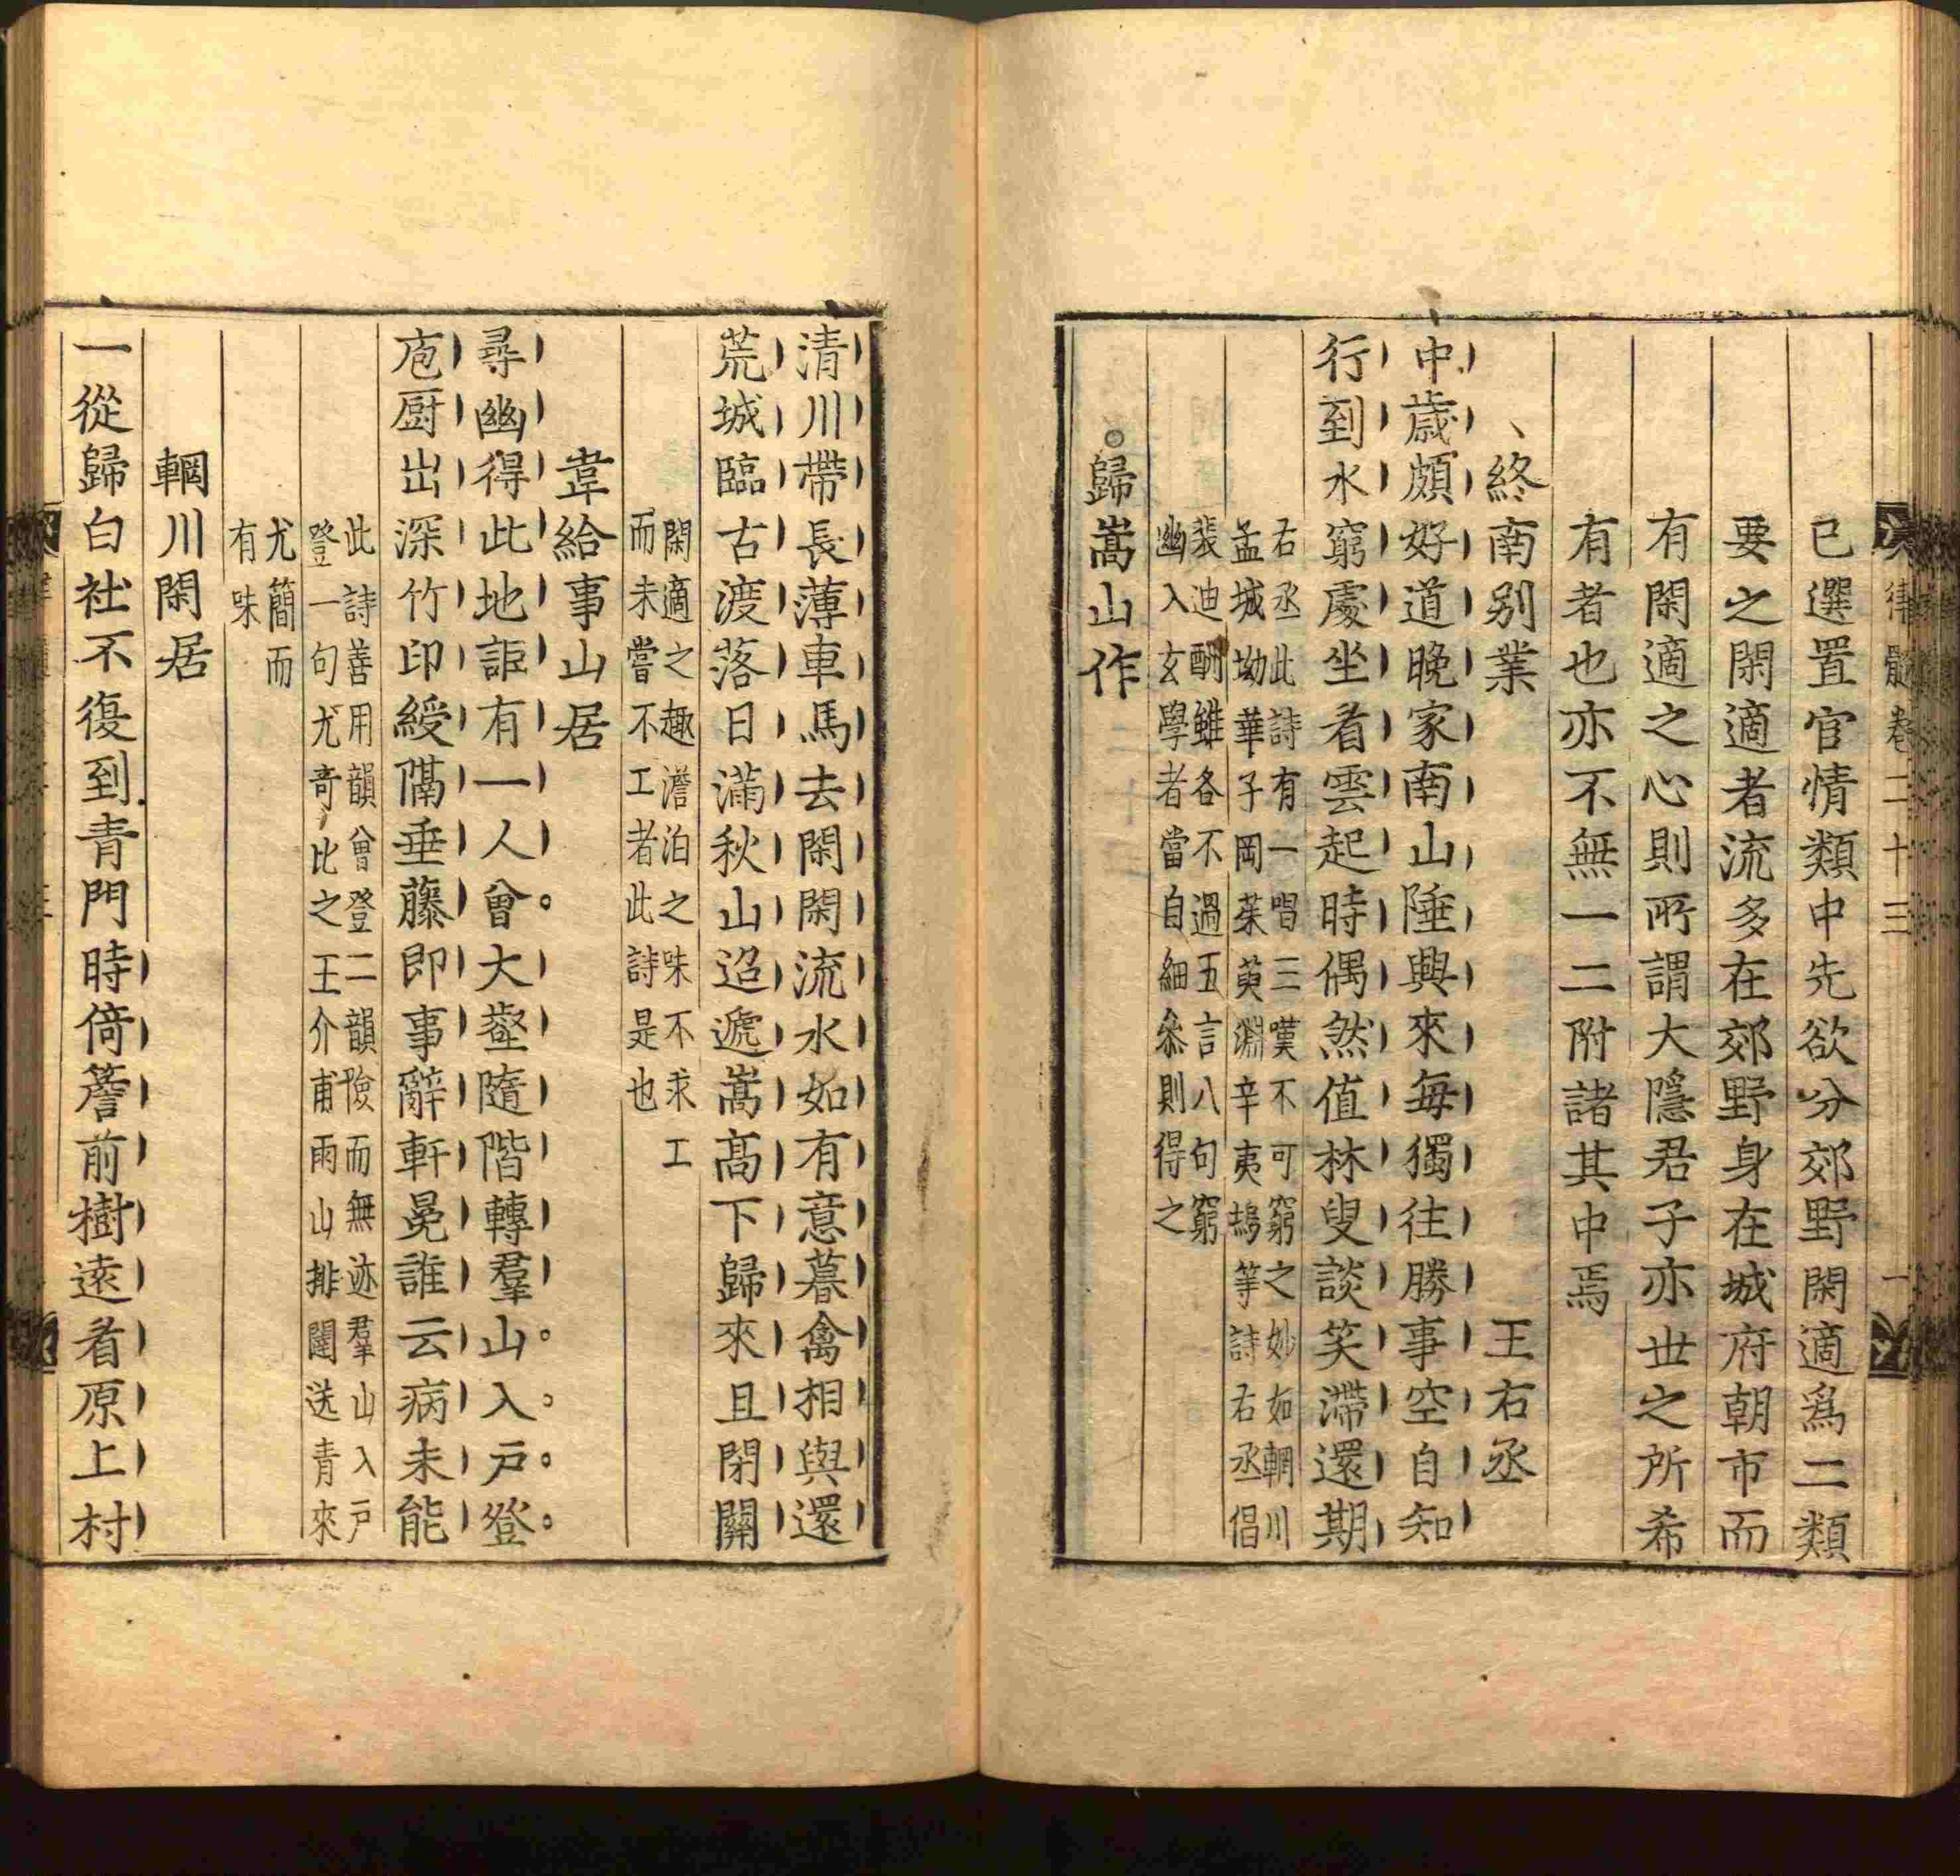 律髓卷二十三 一
已選置官情類中先欲分郊野閑適爲二類
要之閑適者流多在郊野身在城府朝市而
有閑適之心則所謂大隱君子亦世之所希
有者也亦不無一二附諸其中焉
終南别業 王右丞
中歲頗好道晚家南山陲興來毎獨往勝事空自知
行到水窮處坐看雲起時偶然值林叟談笑滯還期
右丞此詩有一唱三嘆不可窮之妙如輞川
孟城坳華子岡茱萸沜辛夷塢等詩右丞倡
裴迪酬雖各不過五言八句窮
幽入玄學者當自細叅則得之
歸嵩山作
清川帶長薄車馬去閑閑流水如有意暮禽相與還
荒城臨古渡落日滿秋山迢遞嵩高下歸來且閉關
閑適之趣澹泊之味不求工
而未嘗不工者此詩是也
韋給事山居
尋幽得此地詎有一人曾大壑隨階轉羣山入戸登
庖厨出深竹印綬隔垂藤即事辭軒冕誰云病未能
此詩善用韻曾登二韻險而無迹羣山入戸
登一句尤竒比之王介甫兩山排闥送青來
尤簡而
有味
輞川閑居
一從歸白社不復到青門時倚簷前樹遠看原上村